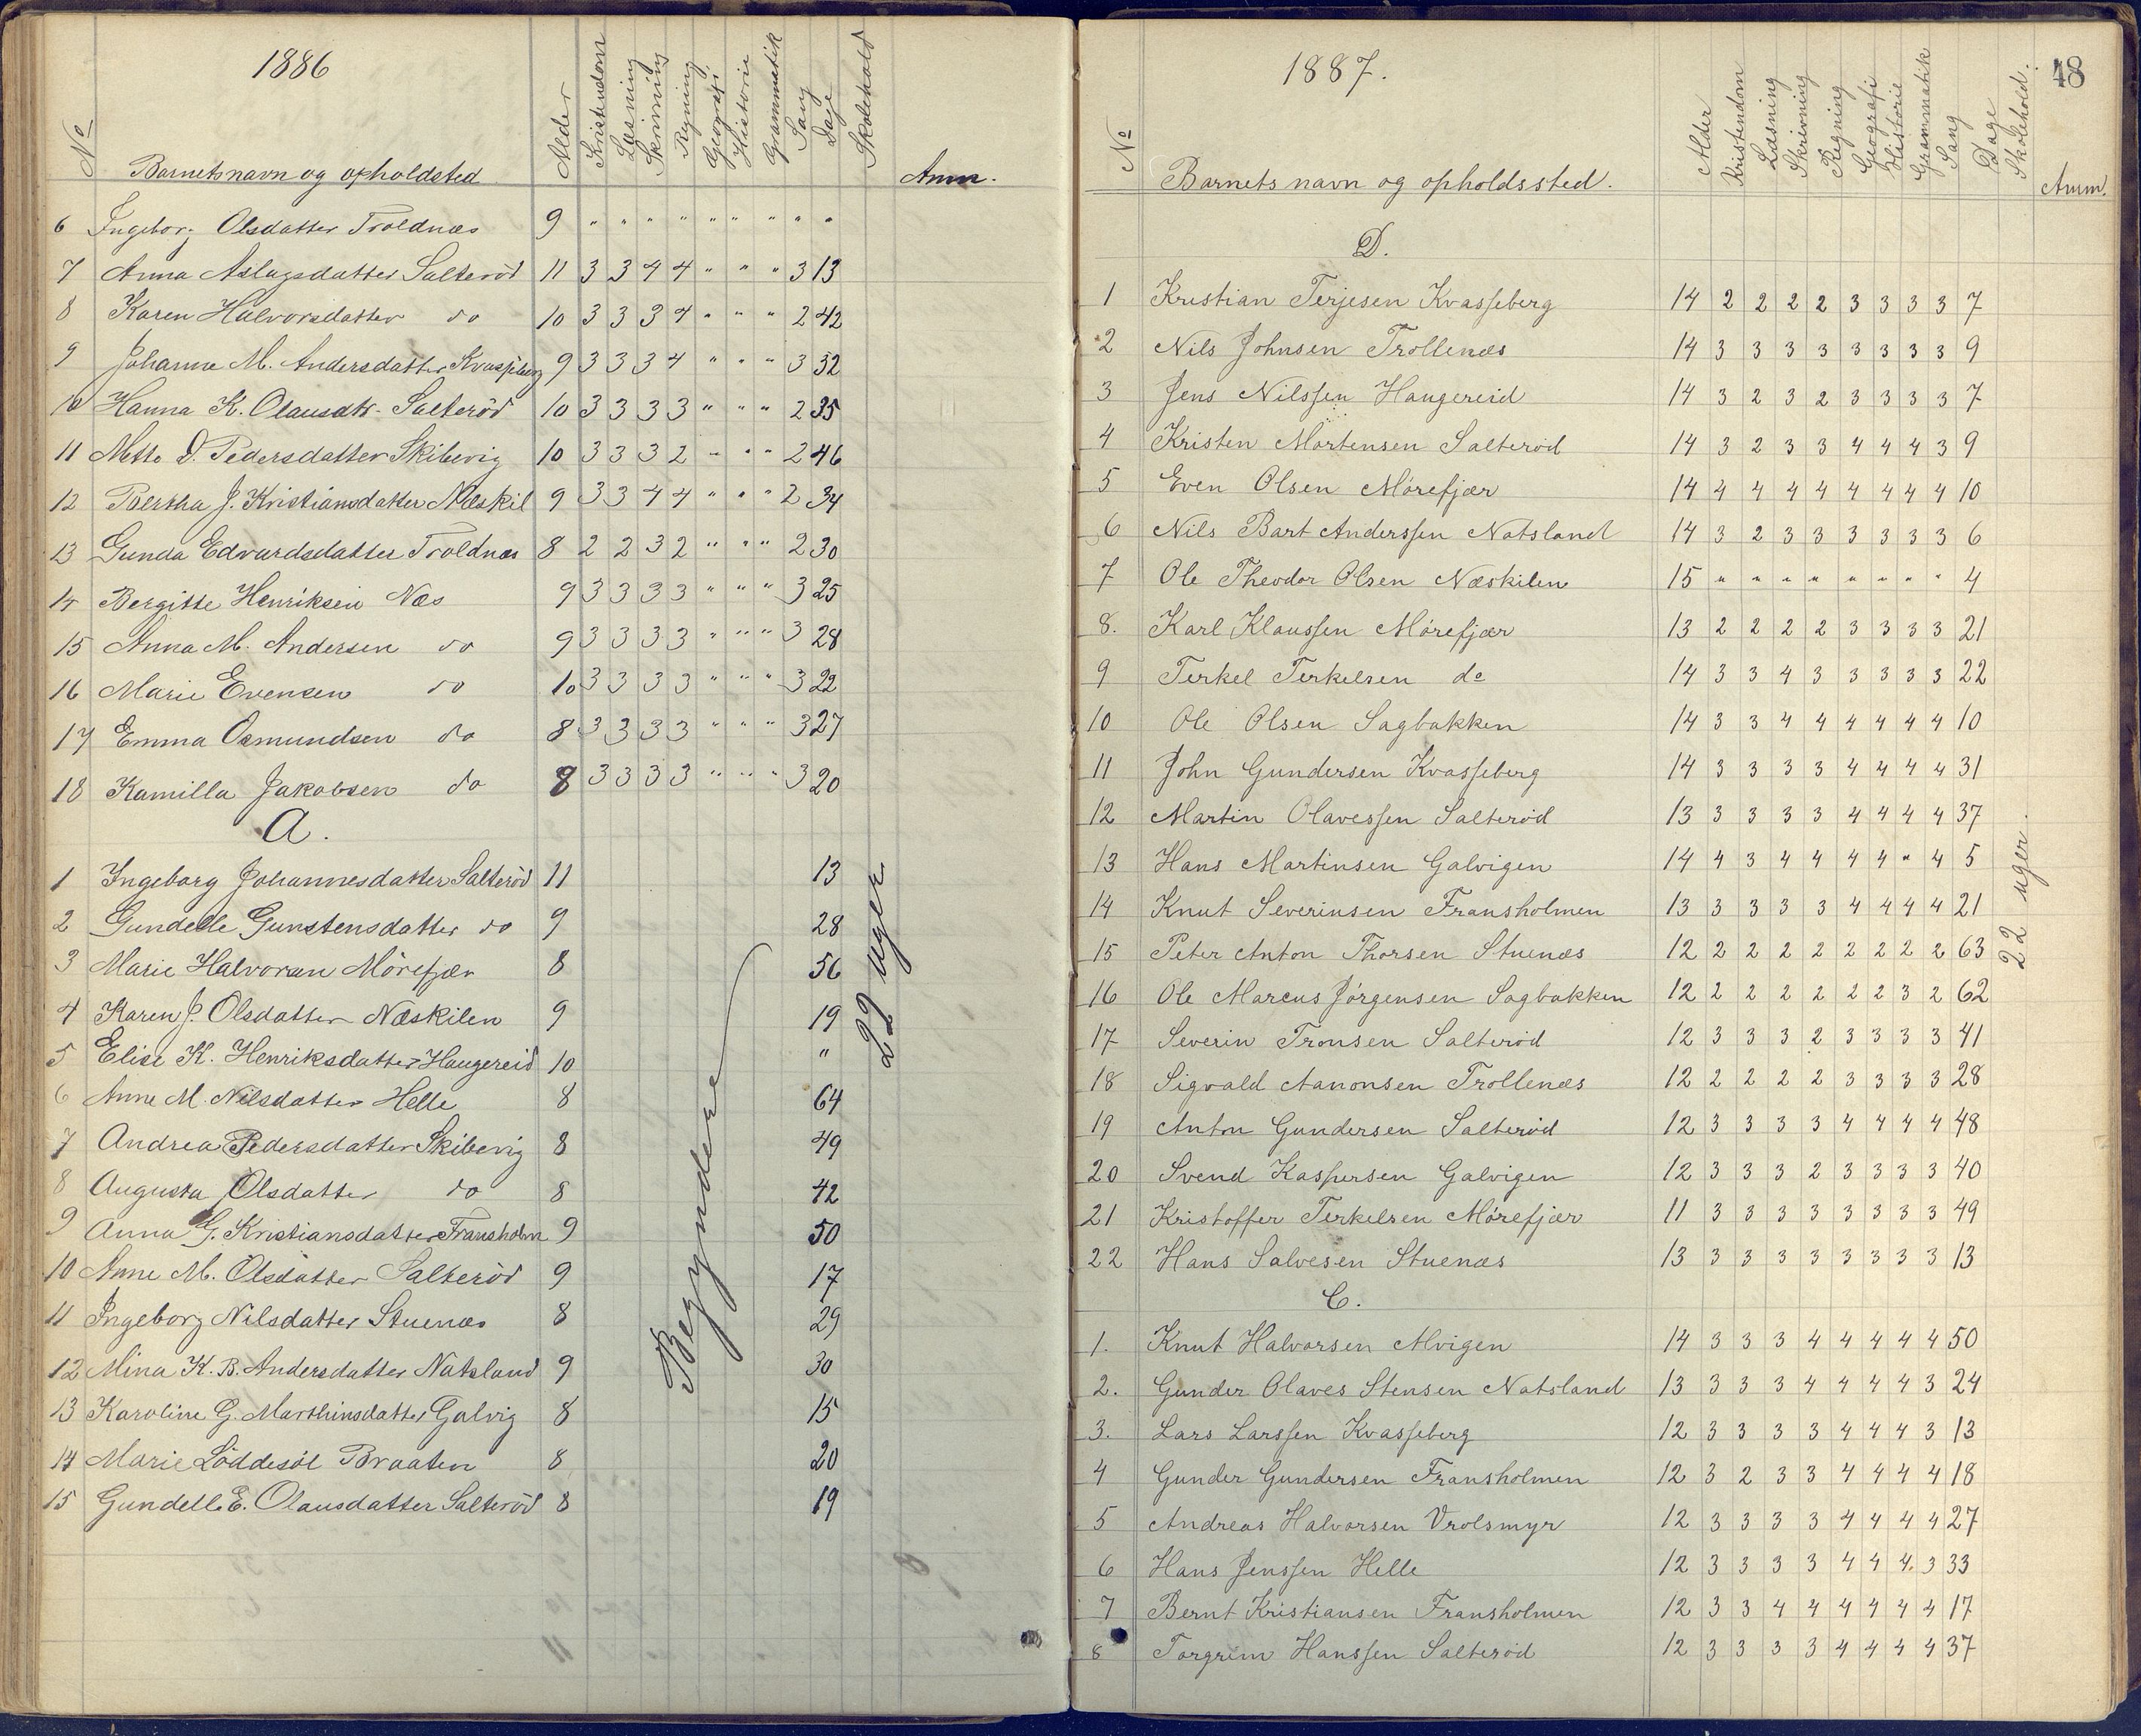 1886
No Barnets navn og opholdsted Alder Kristendom Læsning Skrivning Regning Geografi. Historie Grammatik Sang Dage Skolehold Anm.
6 Ingeborg Olsdatter Troldnæs 9 " " " " " " " " "
7 Anna Aslagsdatter Salteröd 11 3 3 4 4 " " " 3 13
8 Karen Halvorsdatter do 10 3 3 3 4 " " " 2 42
9 Johanne M. Andersdatter Kvasseberg 9 3 3 3 4 " " " 3 32
10 Hanna K. Olausdtr. Salteröd 10 3 3 3 3 " " " 2 35
11 Mette D. Pedersdatter Skibevig 10 3 3 3 2 " " " 2 46
12 Bertha J. Kristiansdatter Næskil 9 3 3 4 4 " " " 2 34
13 Gunda Edvardsdatter Troldnæs 8 2 2 3 2 " " " 2 30
14 Bergitte Henriksen Næs 9 3 3 3 3 " " " 3 25
15 Anna M. Andersen do 9 3 3 3 3 " " " 3 28
16 Marie Evensen do 10 3 3 3 3 " " " 3 22
17 Emma Osmundsen do 8 3 3 3 3 " " " 3 27
18 Kamilla Jakobsen do 8 3 3 3 3 " " " 3 20
A.
1 Ingeborg Johannesdatter Salteröd 11 13
2 Gundelle Gunstensdatter do 9 28
3 Marie Halvorsen Mörefjær 8 56
4 Karen J. Olsdatter Næskilen 9 19
5 Elise K. Henriksdatter Haugereid 10 "
6 Anne M. Nilsdatter Helle 8 64
7 Andrea Pedersdatter Skibevig 8 49
8 Augusta Olsdatter do 8 42
9 Anna G. Kristiansdatter Fransholm 9 50
10 Anne M. Olsdatter Salteröd 9 17
11 Ingeborg Nilsdatter Stuenæs 8 29
12 Mina K. B. Andersdatter Natsland 9 30
13 Karoline G. Marthinsdatter Galvig 8 15
14 Marie Löddesöl Braaten 8 20
15 Gundell E. Olausdatter Salteröd 8 19
Begyndere
22 uger
1887.
48
No Barnets navn og opholdssted. Alder Kristendom Læsning Skrivning Regning Geografi Historie Grammatik Sang Dage Skolehold. Anm.
D.
1 Kristian Terjesen Kvasseberg 14 2 2 2 2 3 3 3 3 7
2 Nils Johnsen Trollenæs 14 3 3 3 3 3 3 3 3 9
3 Jens Nilssen Haugereid 14 3 2 3 2 3 3 3 3 7
4 Kristen Mortensen Salteröd 14 3 2 3 3 4 4 4 3 9
5 Even Olsen Mörefjær 14 4 4 4 4 4 4 4 4 10
6 Nils Bart Anderssen Natsland 14 3 2 3 3 3 3 3 3 6
7 Ole Theodor Olsen Næskilen 15 " " " " " " " " 4
8. Karl Klaussen Mörefjær 13 2 2 2 2 3 3 3 3 21
9 Terkel Terkelsen do 14 3 3 4 3 3 3 3 3 22
10 Ole Olsen Sagbakken 14 3 3 4 4 4 4 4 4 10
11 John Gundersen Kvasseberg 14 3 3 3 3 4 4 4 4 31
12 Martin Olavessen Salteröd 13 3 3 3 3 4 4 4 4 37
13 Hans Martinsen Galvigen 14 4 3 4 4 4 4 " 4 5
14 Knut Severinsen Fransholmen 13 3 3 3 3 4 4 4 4 21
15 Peter Anton Thorsen Stuenæs 12 2 2 2 2 2 2 2 2 63
16 Ole Marcus Jörgensen Sagbakken 12 2 2 2 2 2 2 3 2 62
17 Severin Tronsen Salteröd 12 3 3 3 2 3 3 3 3 41
18 Sigvald Aanonsen Trollenæs 12 2 2 2 2 3 3 3 3 28
19 Anton Gundersen Salteröd 12 3 3 3 3 4 4 4 4 48
20 Svend Kaspersen Galvigen 12 3 3 3 2 3 3 3 3 40
21 Kristoffer Terkelsen Mörefjær 11 3 3 3 3 3 3 3 3 49
22 Hans Salvesen Stuenæs 13 3 3 3 3 3 3 3 3 13
C.
1. Knut Halvorsen Alvigen 14 3 3 3 4 4 4 4 4 50
2. Gunder Olaves Stensen Natsland 13 3 3 3 4 4 4 4 3 24
3. Lars Larssen Kvasseberg 12 3 3 3 3 4 4 4 3 13
4 Gunder Gundersen Fransholmen 12 3 2 3 3 4 4 4 4 18
5 Andreas Halvorsen Vrolsmyr 12 3 3 3 3 4 4 4 4 27
6 Hans Jenssen Helle 12 3 3 3 3 4 4 4. 3 33
7 Bernt Kristiansen Fransholmen 12 3 3 4 4 4 4 4 4 17
8 Torgrim Hanssen Salteröd 12 3 3 3 3 4 4 4 4 37
22 uger.